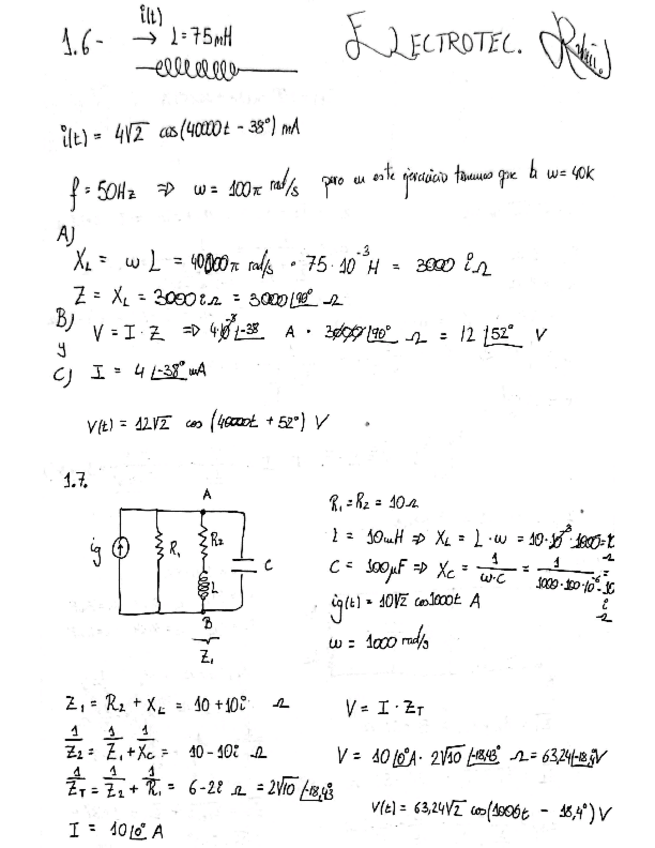 1.6-
i(t)
→ L=75mH
ELECTROTEC.
i(t) = 4√2 cos(40000t - 38°) mA
f = 50Hz ⇒ ω = 100π rad/s pero en este ejercicio tenemos que la ω = 40k
A)
X_L = ω L = 40000π rad/s · 75·10⁻³ H = 3000 i Ω
Z = X_L = 3000i Ω = 3000∠90° Ω
B)
y
C)
V = I · Z ⇒ 4·10⁻³∠-38 A · 3000∠90° Ω = 12∠52° V
I = 4∠-38° mA
V(t) = 12√2 cos(40000t + 52°) V
1.7.
A
ig
R₁
R₂
L
C
B
Z₁
R₁ = R₂ = 10Ω
L = 10mH ⇒ X_L = L·ω = 10·10⁻³·1000 = i Ω
C = 100μF ⇒ X_C = 1/(ω·C) = 1/(1000·100·10⁻⁶) = -10 i Ω
ig(t) = 10√2 cos1000t A
ω = 1000 rad/s
Z₁ = R₂ + X_L = 10 + 10i Ω
1/Z₂ = 1/Z₁ + 1/X_C = 10 - 10i Ω
1/Z_T = 1/Z₂ + 1/R₁ = 6 - 2i Ω = 2√10∠-18,43
I = 10∠0° A
V = I · Z_T
V = 10∠0° A · 2√10∠-18,43° Ω = 63,24∠-18,4 V
V(t) = 63,24√2 cos(1000t - 18,4°) V